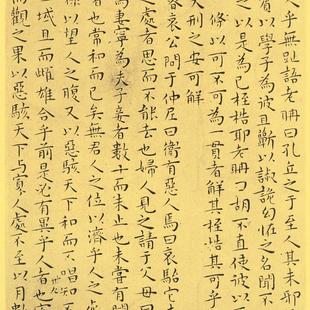 人乎無趾語老聃曰孔丘之于至人其未耶
者以學子為彼且蘄以諔詭幻怪之名聞不
之以是為己桎梏耶老聃曰胡不直使彼以
條以可不可為一貫者解其桎梏其可乎
天刑之安可解
哀公問于仲尼曰衛有惡人焉曰哀駘它
之處者思而不能去也婦人見之請于父母曰
為妻寧為夫子妾者數十而未止也未嘗有聞
者也常和而已矣無君人之位以濟乎人之
以望人之腹又以惡駭天下和而不唱知
域且而雌雄合乎前是必有異乎人者也寡
而觀之果以惡駭天下與寡人處不至以月數